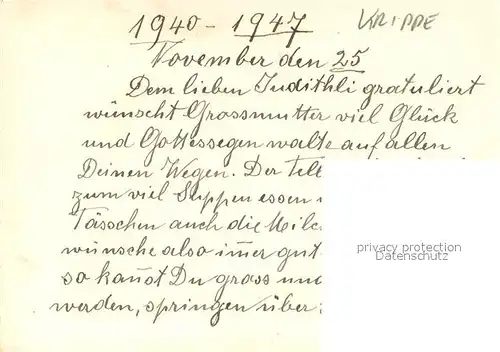 1940 - 1947
KRIPPE
November den 25
Dem lieben Judithli gratuliert
wünscht Grossmutter viel Glück
und Gottessegen walte auf allen
Deinen Wegen. Der Tell
zum viel Suppen essen
Tässchen auch die Milch
wünsche also im̅er gut
so kan̅st Du gross und
werden, springen über
privacy protection
Datenschutz